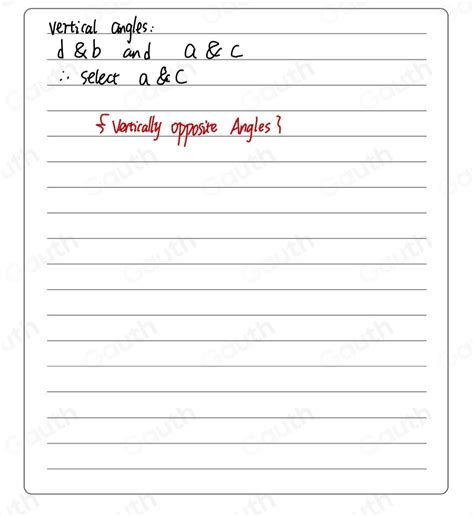 vertical angles:
d & b and a & c
∴ select a & c
{ Vertically opposite Angles }